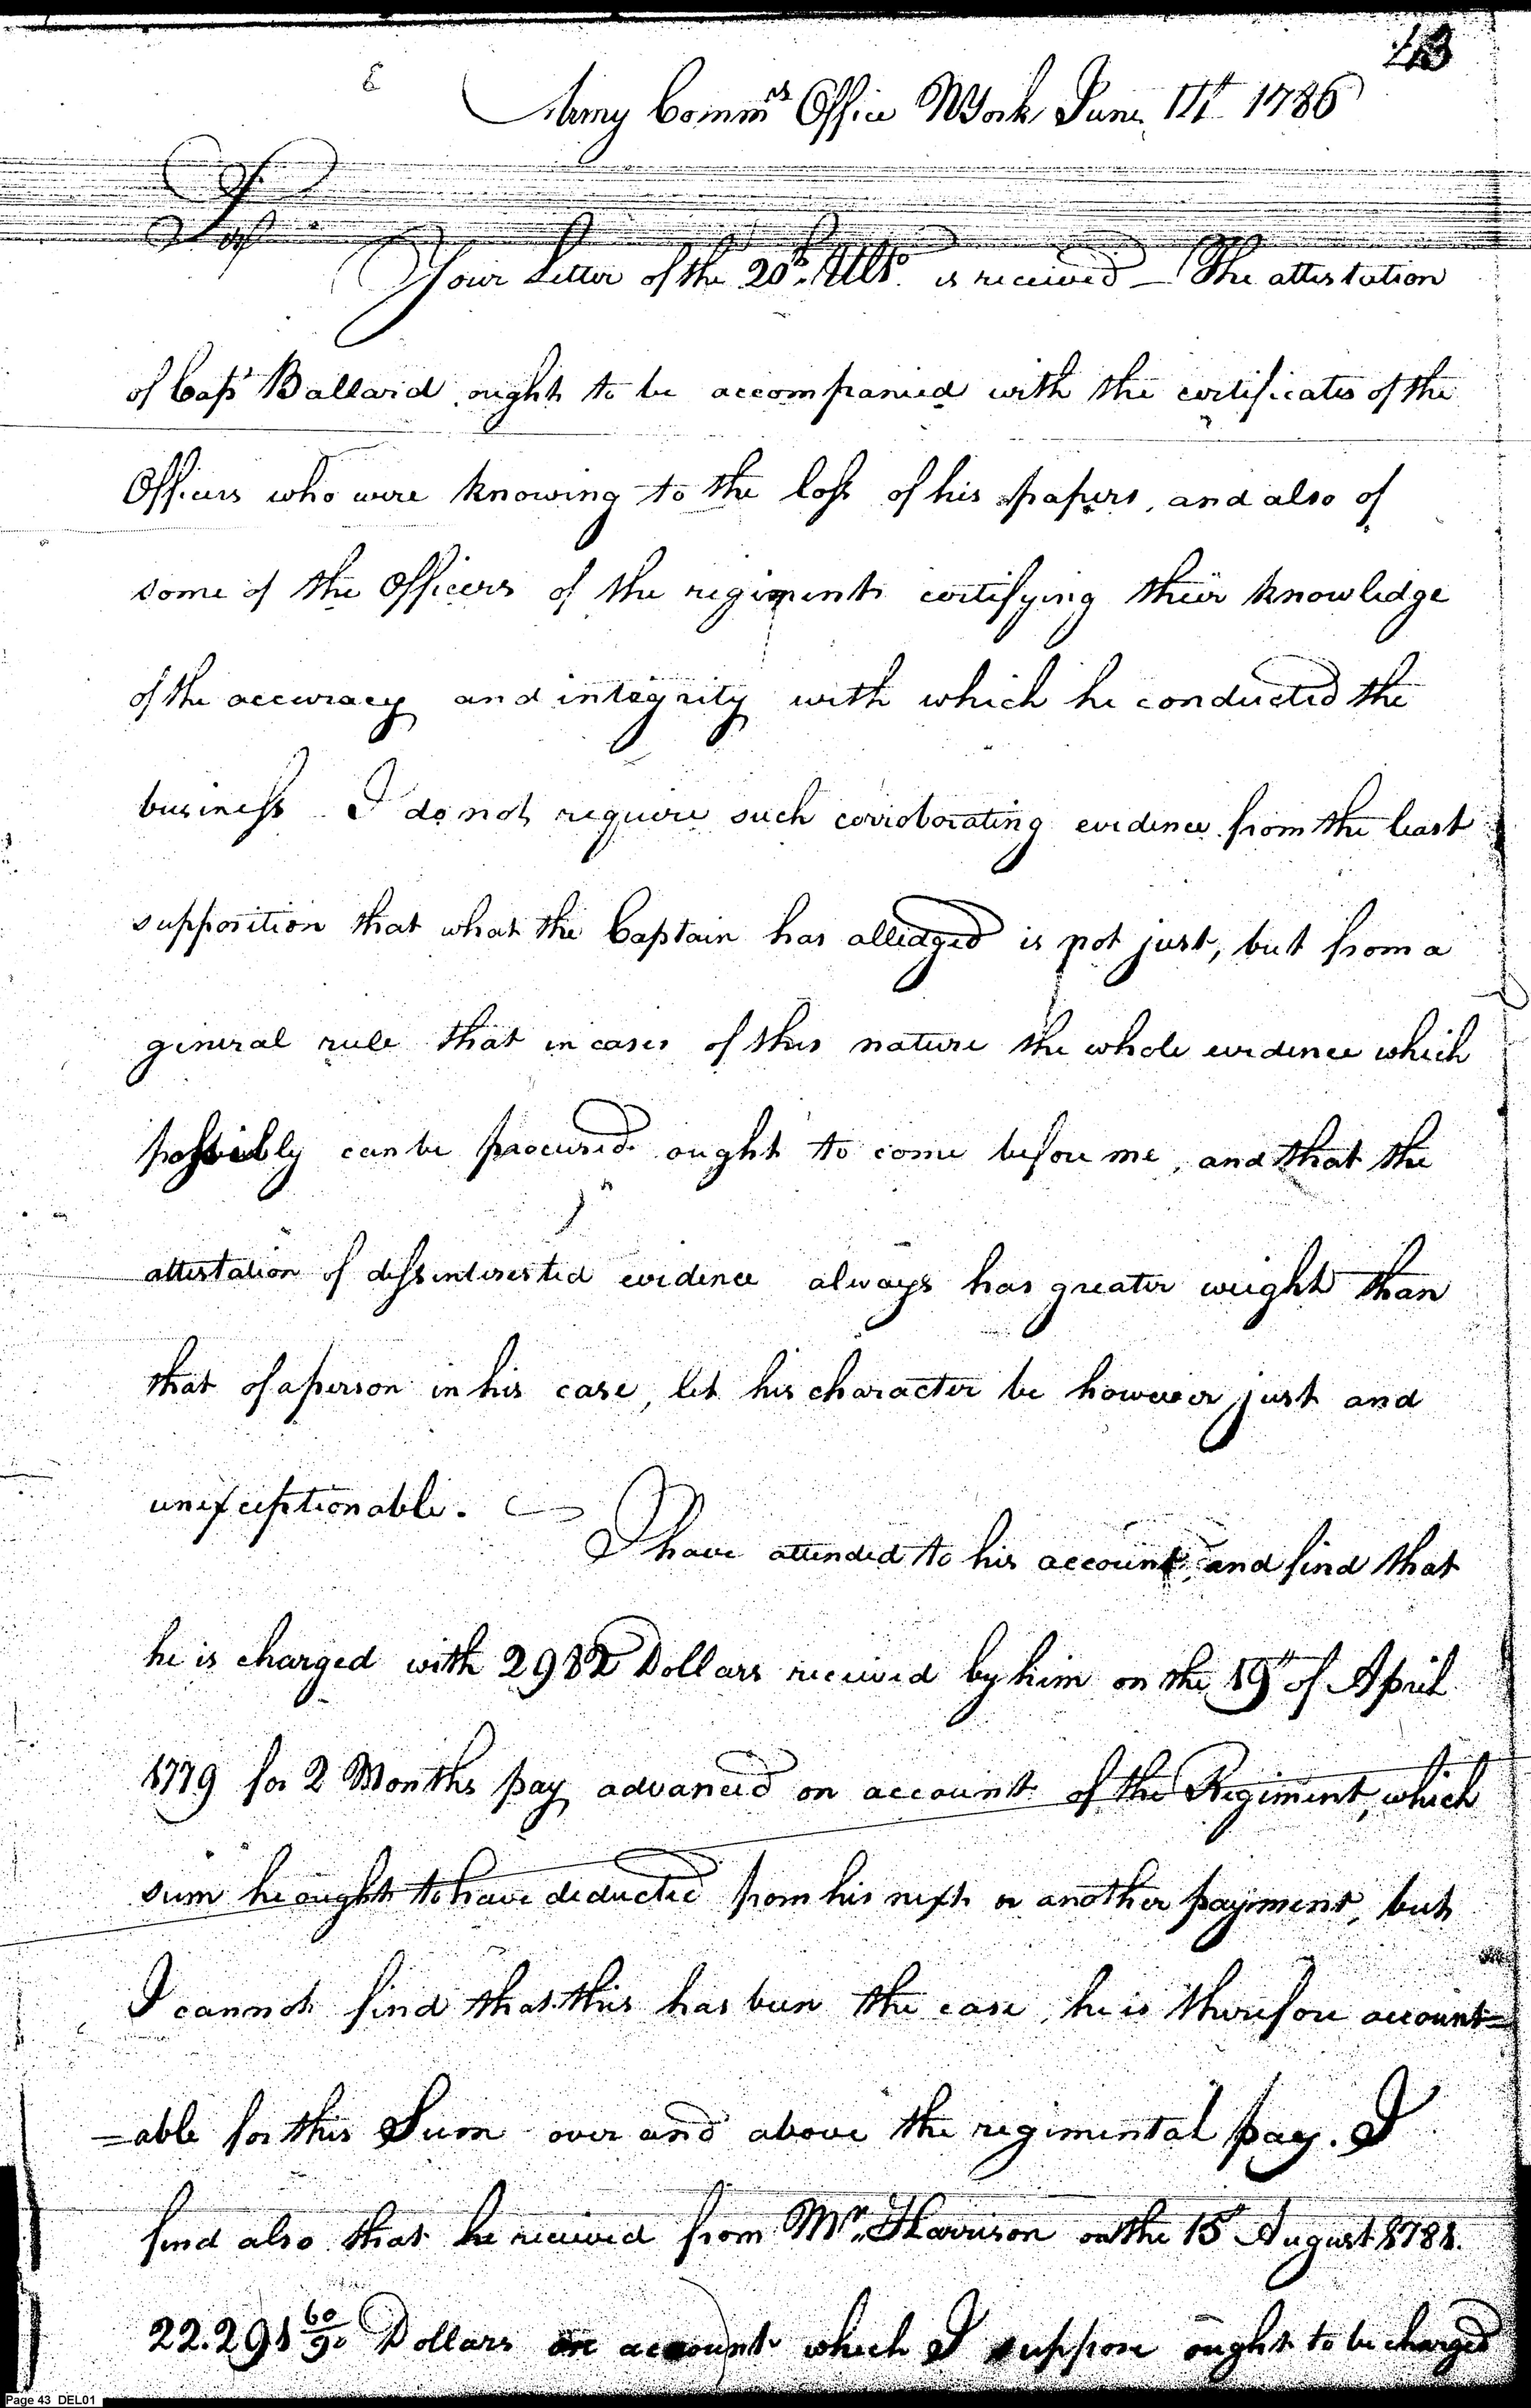 43
Army Comm.rs Office NYork June 1786
Sir
Your Letter of the 20th Ulto. is received — The attestation
of Capt Ballard ought to be accompanied with the certificates of the
Officers who were knowing to the loss of his papers, and also of
some of the Officers of the regiment certifying their knowledge
of the accuracy and integrity with which he conducted the
business I do not require such corroborating evidence from the least
supposition that what the Captain has alledged is not just, but from a
general rule that in cases of this nature the whole evidence which
possibly can be procured ought to come before me, and that the
attestation of dissinterested evidence always has greater weight than
that of a person in his case, let his character be however just and
unexceptionable.
I have attended to his account, and find that
he is charged with 2982 Dollars received by him on the 19th of April
1779 for 2 Months pay advanced on account of the Regiment, which
sum he ought to have deducted from his next or another payment, but
I cannot find that this has been the case, he is therefore account=
=able for this Sum over and above the regimental pay. I
find also that he received from Mr. Harrison on the 15 August 1781.
22.291 60/90 Dollars on account which I suppose ought to be charged
Page 43 DEL01